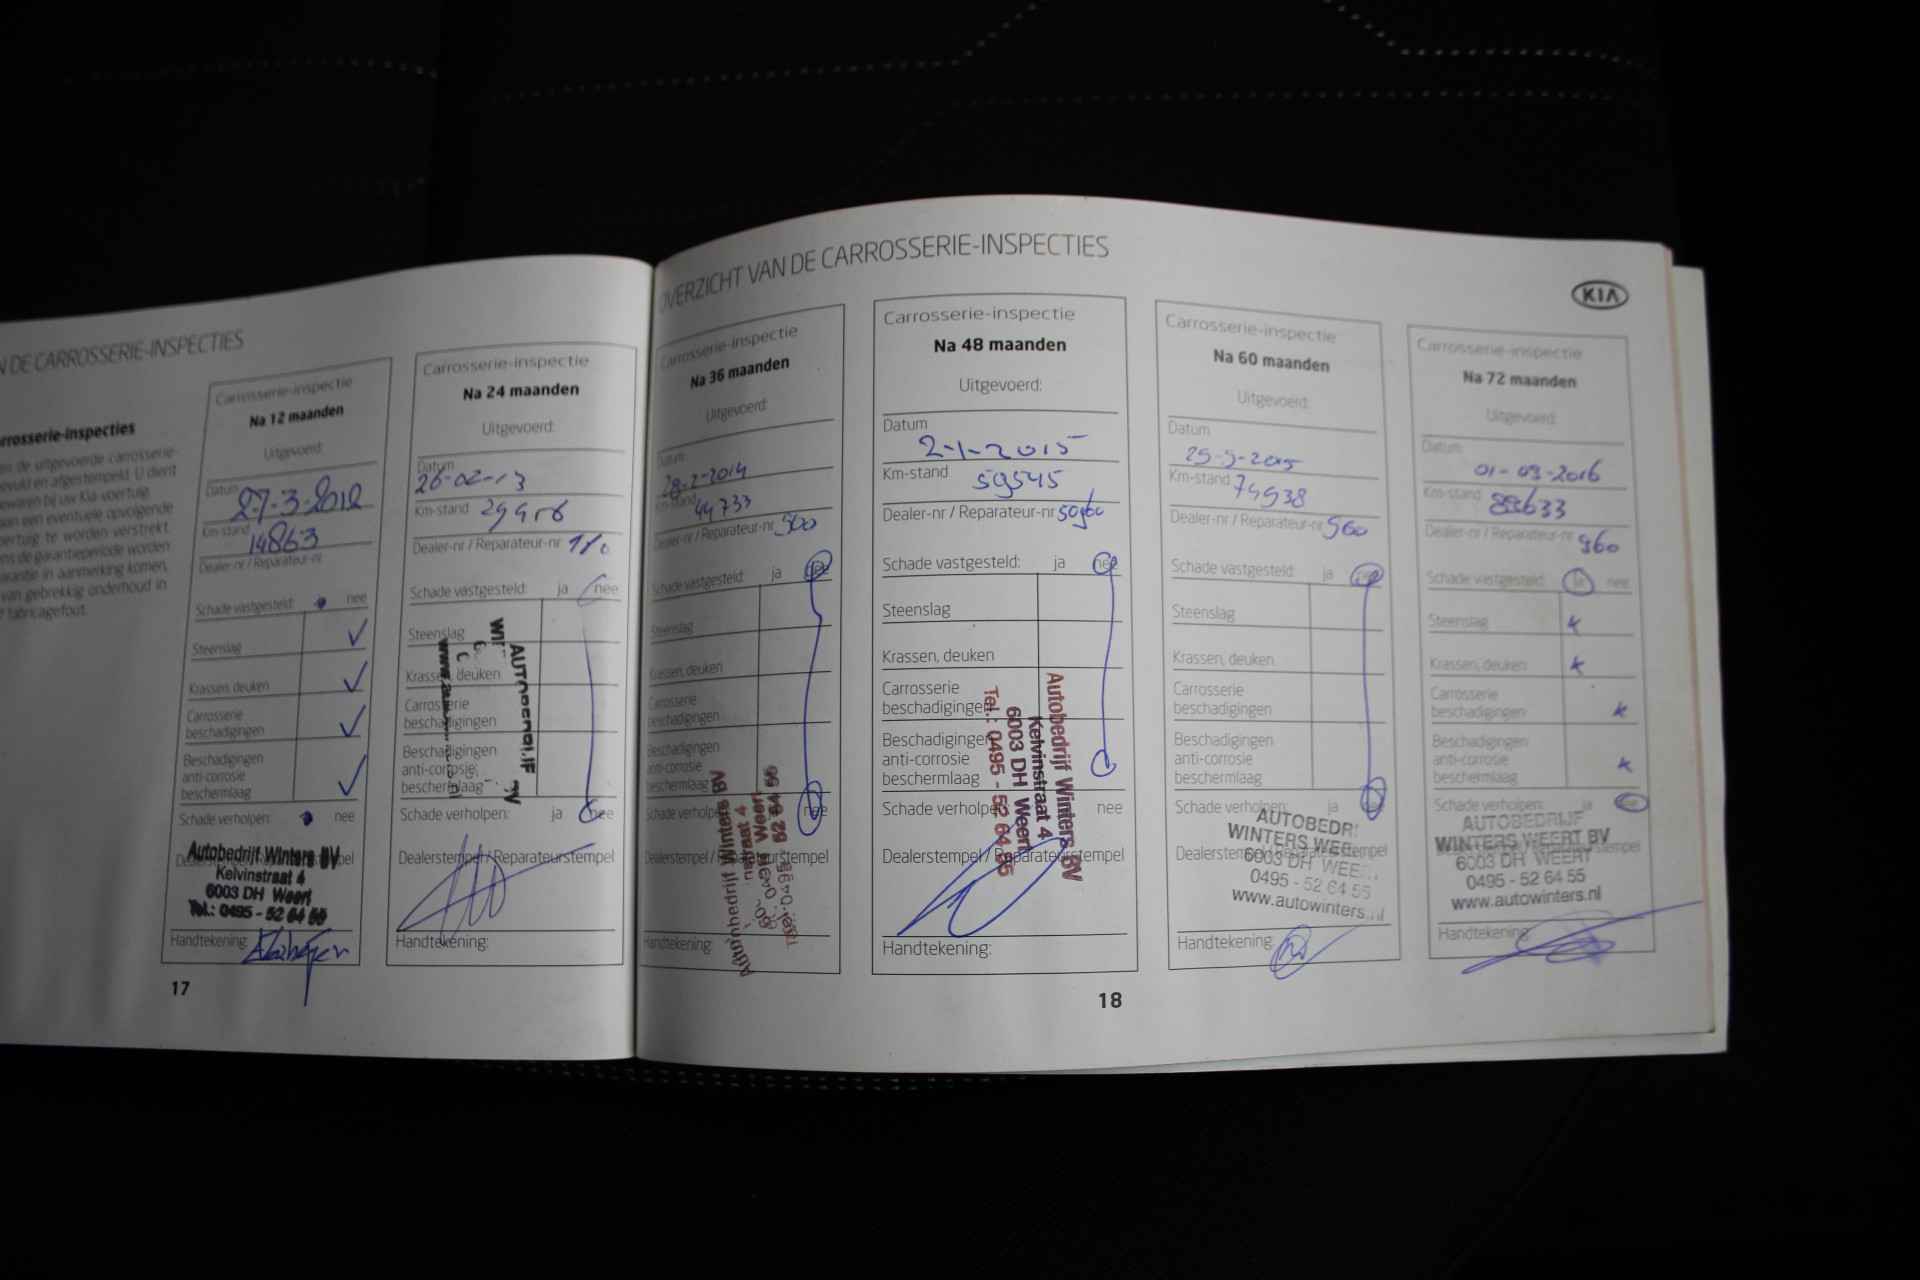 N DE CARROSSERIE-INSPECTIES
rrosserie-inspecties
en de uitgevoerde carrosserie-
evuld en afgestempeld. U dient
ewaren bij uw Kia-voertuig.
aan een eventuele opvolgende
oertuig te worden verstrekt.
ens de garantieperiode worden
arantie in aanmerking komen,
van gebrekkig onderhoud in
fabricagefout.
Carrosserie-inspectie
Na 12 maanden
Uitgevoerd:
Datum 27-3-2012
Km-stand 14863
Dealer-nr / Reparateur-nr
Schade vastgesteld: nee
Steenslag
Krassen, deuken
Carrosserie
beschadigingen
Beschadigingen
anti-corrosie
beschermlaag
Schade verholpen: nee
Autobedrijf Winters BV
Kelvinstraat 4
6003 DH Weert
Tel.: 0495 - 52 64 55
Handtekening:
17
Carrosserie-inspectie
Na 24 maanden
Uitgevoerd:
Datum
26-02-13
Km-stand
Dealer-nr / Reparateur-nr
Schade vastgesteld: ja nee
Steenslag
Krassen, deuken
Carrosserie
beschadigingen
Beschadigingen
anti-corrosie
beschermlaag
Schade verholpen: ja nee
Dealerstempel / Reparateurstempel
Handtekening:
OVERZICHT VAN DE CARROSSERIE-INSPECTIES
KIA
Carrosserie-inspectie
Na 36 maanden
Uitgevoerd:
Datum
28-2-2014
Km-stand
44733
Dealer-nr / Reparateur-nr
Schade vastgesteld: ja nee
Steenslag
Krassen, deuken
Carrosserie
beschadigingen
Beschadigingen
anti-corrosie
beschermlaag
Schade verholpen: nee
Handtekening:
Carrosserie-inspectie
Na 48 maanden
Uitgevoerd:
Datum
2-1-2015
Km-stand 59545
Dealer-nr / Reparateur-nr
Schade vastgesteld: ja nee
Steenslag
Krassen, deuken
Carrosserie
beschadigingen
Beschadigingen
anti-corrosie
beschermlaag
Schade verholpen: nee
Dealerstempel / Reparateurstempel
Autobedrijf Winters BV
Kelvinstraat 4
6003 DH Weert
Tel.: 0495 - 52 64 55
Handtekening:
18
Carrosserie-inspectie
Na 60 maanden
Uitgevoerd:
Datum
29-9-2015
Km-stand 74938
Dealer-nr / Reparateur-nr 960
Schade vastgesteld: ja nee
Steenslag
Krassen, deuken
Carrosserie
beschadigingen
Beschadigingen
anti-corrosie
beschermlaag
Schade verholpen: ja
AUTOBEDR
WINTERS WEE
6003 DH WEE
0495 - 52 64 55
www.autowinters.nl
Handtekening:
Carrosserie-inspectie
Na 72 maanden
Uitgevoerd:
Datum
01-09-2016
Km-stand
Dealer-nr / Reparateur-nr 960
Schade vastgesteld: ja nee
Steenslag x
Krassen, deuken x
Carrosserie
beschadigingen x
Beschadigingen
anti-corrosie
beschermlaag x
Schade verholpen: ja nee
AUTOBEDRIJF
WINTERS WEERT BV
6003 DH WEERT
0495 - 52 64 55
www.autowinters.nl
Handtekening: